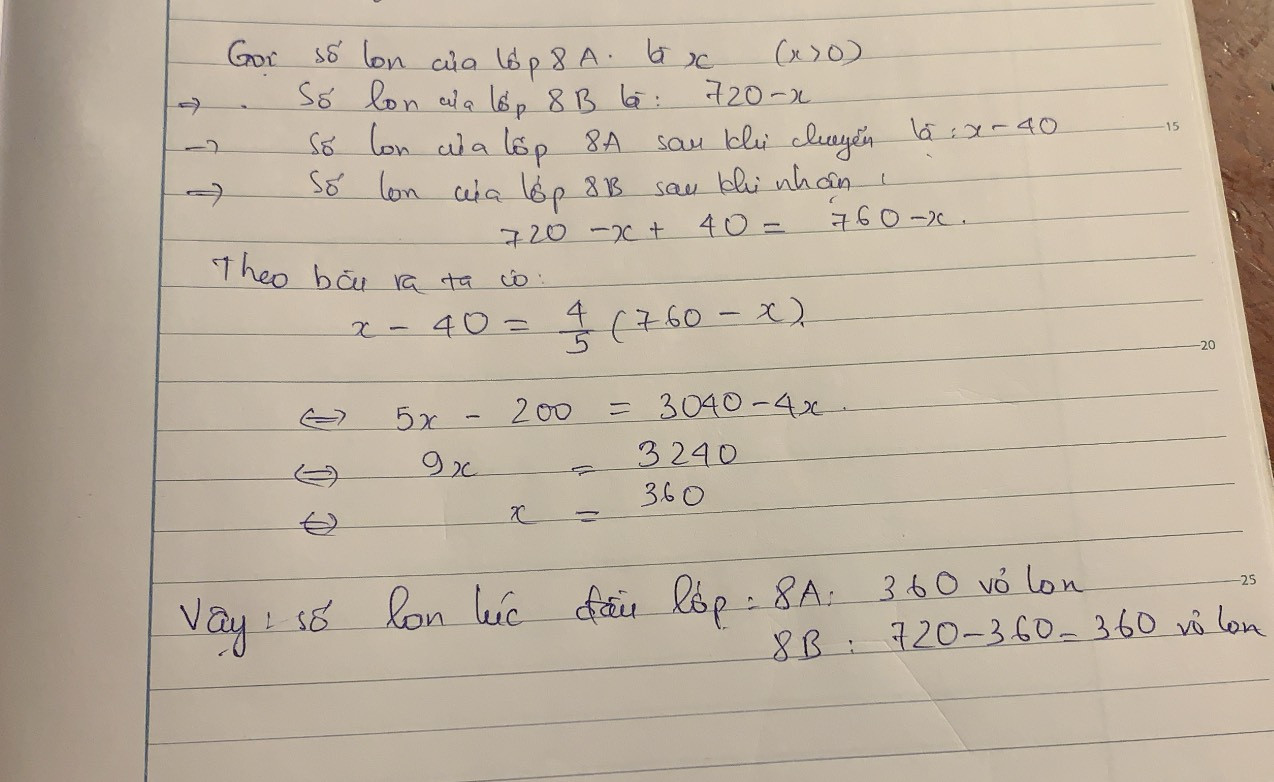 Gọi số lon của lớp 8A. là x (x>0)
=> . Số lon của lớp 8B là: 720-x
-> Số lon của lớp 8A sau khi chuyển là: x-40
=> Số lon của lớp 8B sau khi nhận:
720 -x+ 40 = 760-x.
Theo bài ra ta có:
x - 40 = 4/5 (760 - x).
<=> 5x - 200 = 3040-4x.
<=> 9x = 3240
<=> x = 360
Vậy: số lon lúc đầu lớp: 8A: 360 vỏ lon
8B: 720-360= 360 vỏ lon
15
20
25